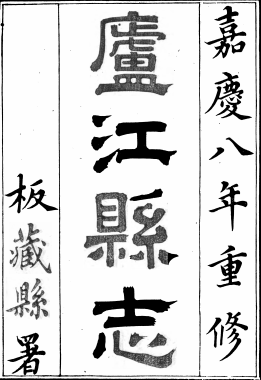 嘉慶八年重修
廬江縣志
板藏縣署